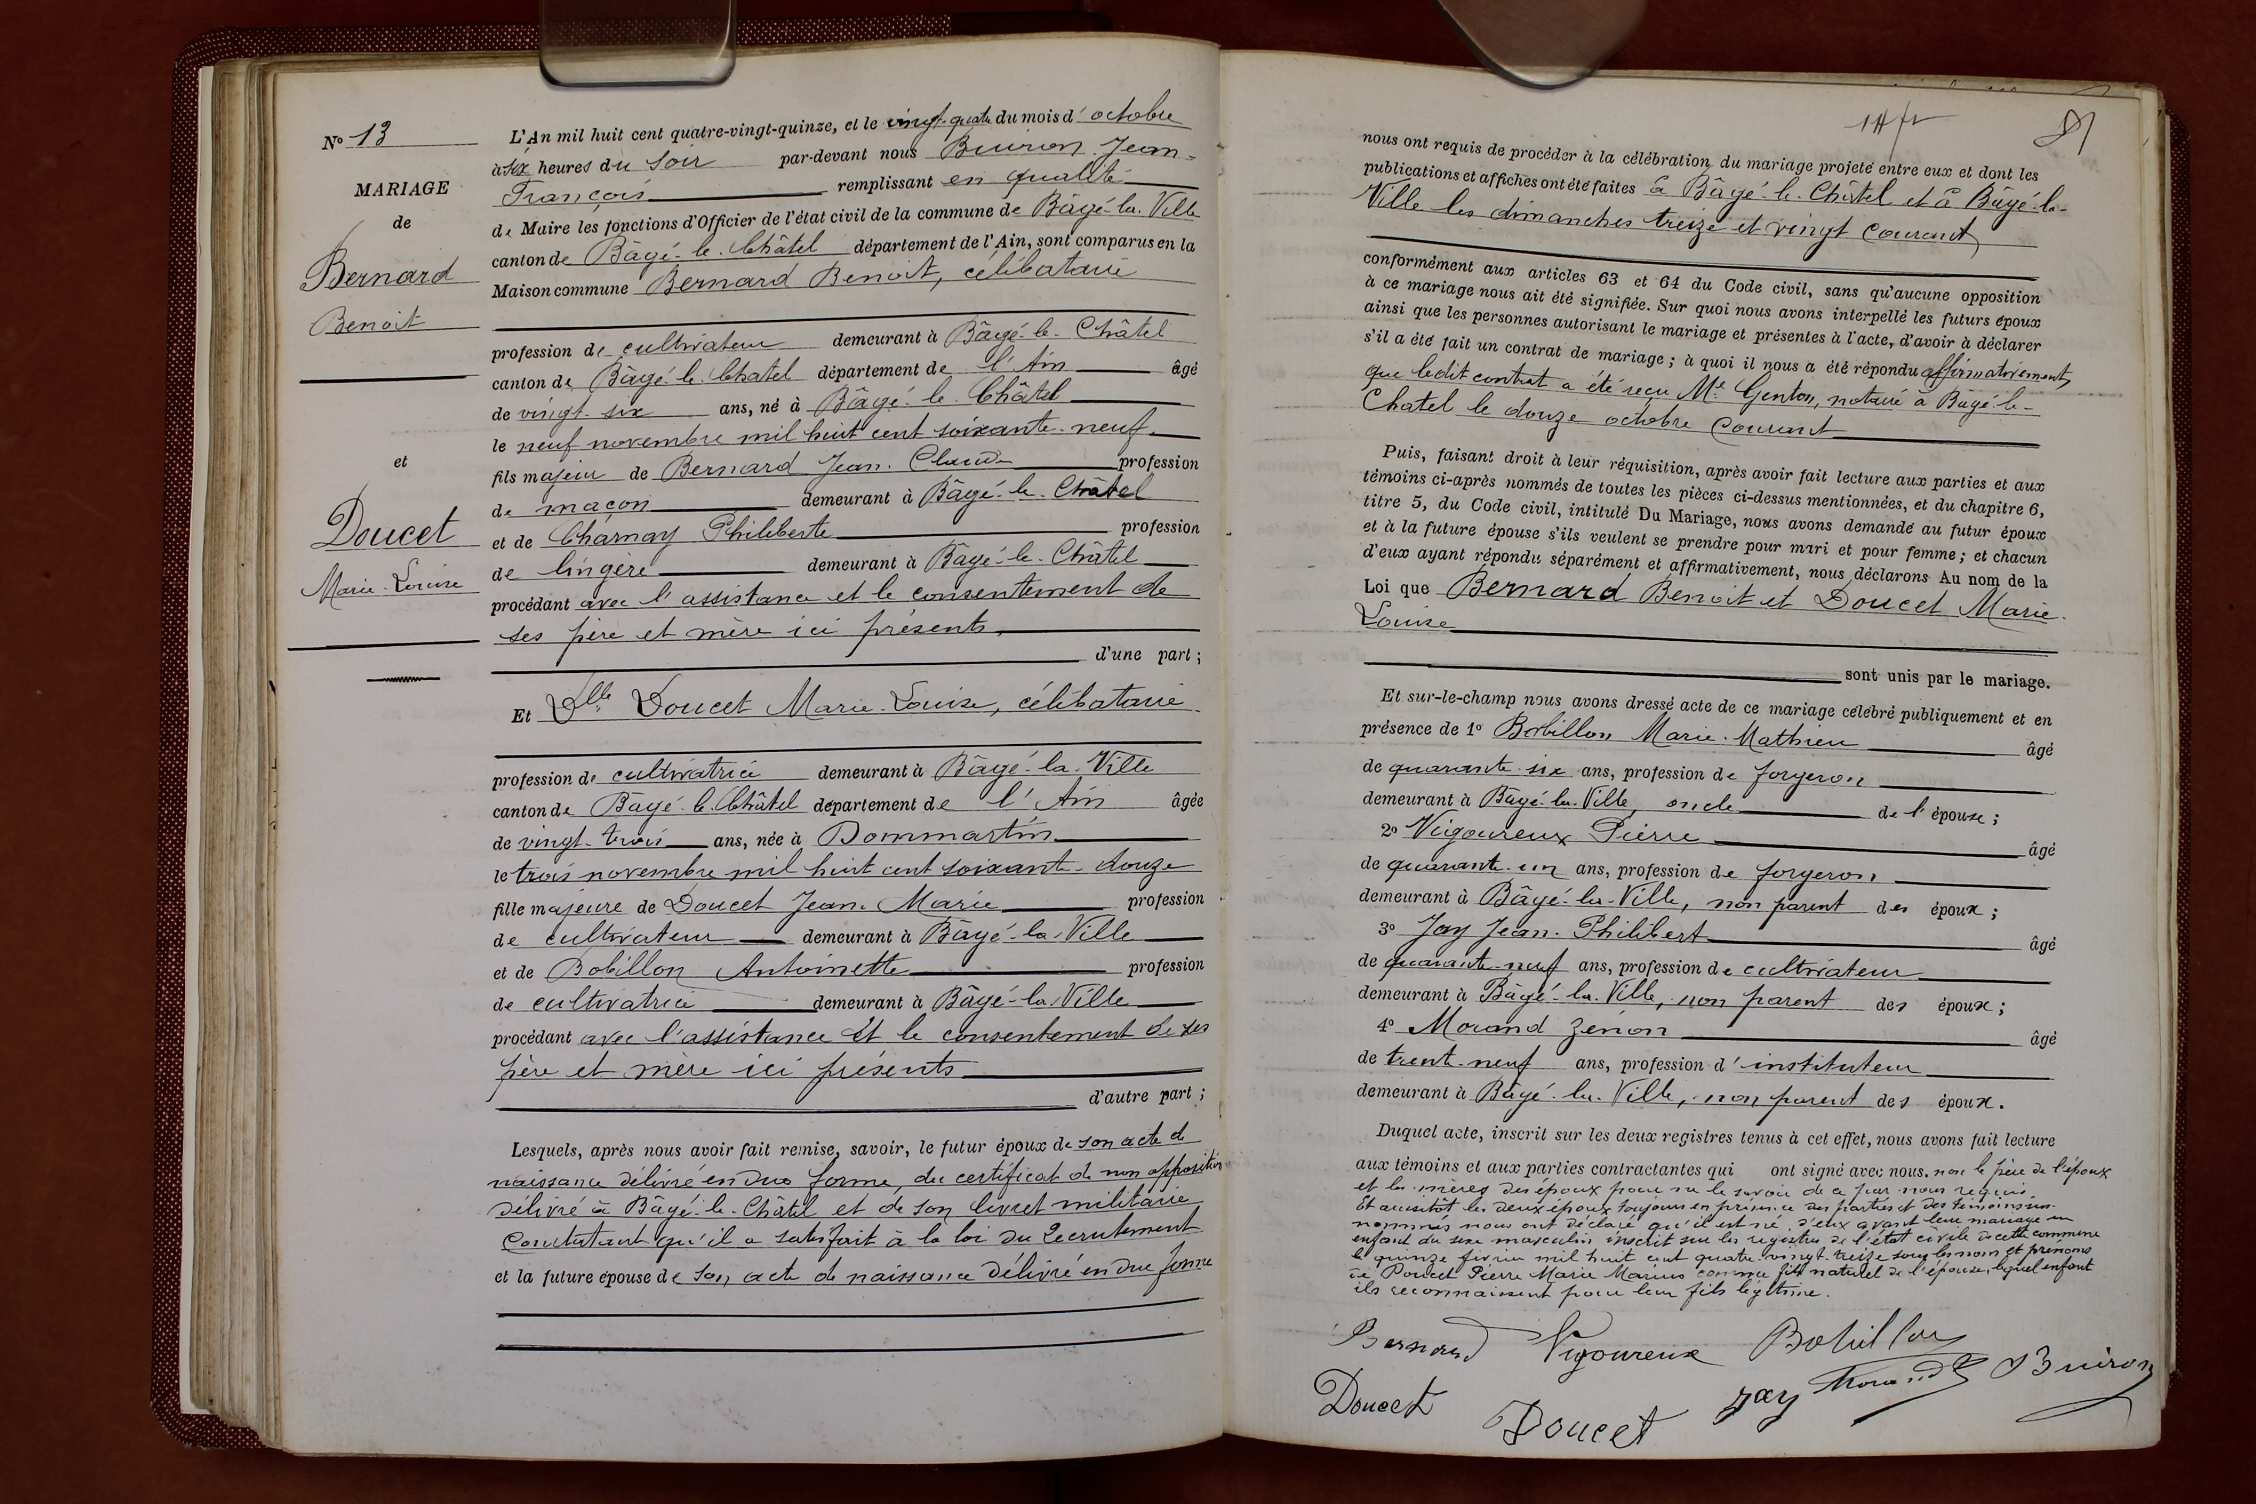 No 13
MARIAGE
de
Bernard
Benoit
et
Doucet
Marie-Louise
L'An mil huit cent quatre-vingt-quinze, et le vingt-quatre du mois d'octobre
à six heures du soir par-devant nous Buiron Jean-
François remplissant en qualité
de Maire les fonctions d'Officier de l'état civil de la commune de Bâgé-la-Ville
canton de Bâgé-le-Châtel département de l'Ain, sont comparus en la
Maison commune Bernard Benoit, célibataire
profession de cultivateur demeurant à Bâgé-le-Châtel
canton de Bâgé-le-Chatel département de l'Ain âgé
de vingt-six ans, né à Bâgé-le-Châtel
le neuf novembre mil huit cent soixante-neuf
fils majeur de Bernard Jean-Claude profession
de maçon demeurant à Bâgé-le-Châtel
et de Charnay Philiberte profession
de lingère demeurant à Bâgé-le-Châtel
procédant avec l'assistance et le consentement de
ses père et mère ici présents,
d'une part ;
Et Dlle Doucet Marie-Louise, célibataire
profession de cultivatrice demeurant à Bâgé-la-Ville
canton de Bâgé-le-Châtel département de l'Ain âgée
de vingt-trois ans, née à Dommartin
le trois novembre mil huit cent soixante-douze
fille majeure de Doucet Jean-Marie profession
de cultivateur demeurant à Bâgé-la-Ville
et de Bobillon Antoinette profession
de cultivatrice demeurant à Bâgé-la-Ville
procédant avec l'assistance et le consentement de ses
père et mère ici présents
d'autre part ;
Lesquels, après nous avoir fait remise, savoir, le futur époux de son acte de
naissance délivré en due forme, du certificat de non opposition
délivré à Bâgé-le-Châtel et de son livret militaire
Constatant qu'il a satisfait à la loi du recrutement
et la future épouse de son acte de naissance délivré en due forme
81
nous ont requis de procéder à la célébration du mariage projeté entre eux et dont les
publications et affiches ont été faites à Bâgé-le-Châtel et à Bâgé-la-
Ville les dimanches treize et vingt courant
conformément aux articles 63 et 64 du Code civil, sans qu'aucune opposition
à ce mariage nous ait été signifiée. Sur quoi nous avons interpellé les futurs époux
ainsi que les personnes autorisant le mariage et présentes à l'acte, d'avoir à déclarer
s'il a été fait un contrat de mariage ; à quoi il nous a été répondu affirmativement
que ledit contrat a été reçu Me Genton, notaire à Bâgé-le-
Chatel le douze octobre courant
Puis, faisant droit à leur réquisition, après avoir fait lecture aux parties et aux
témoins ci-après nommés de toutes les pièces ci-dessus mentionnées, et du chapitre 6,
titre 5, du Code civil, intitulé Du Mariage, nous avons demandé au futur époux
et à la future épouse s'ils veulent se prendre pour mari et pour femme ; et chacun
d'eux ayant répondu séparément et affirmativement, nous déclarons Au nom de la
Loi que Bernard Benoit et Doucet Marie
Louise
sont unis par le mariage.
Et sur-le-champ nous avons dressé acte de ce mariage célébré publiquement et en
présence de 1o Bobillon Marie-Mathieu âgé
de quarante-six ans, profession de forgeron
demeurant à Bâgé-la-Ville, oncle de l'épouse ;
2o Vigoureux Pierre âgé
de quarante-un ans, profession de forgeron
demeurant à Bâgé-la-Ville, non parent des époux ;
3o Jay Jean-Philibert âgé
de quarante-neuf ans, profession de cultivateur
demeurant à Bâgé-la-Ville, non parent des époux ;
4o Morand Zénon âgé
de trente-neuf ans, profession d'instituteur
demeurant à Bâgé-la-Ville, non parent des époux.
Duquel acte, inscrit sur les deux registres tenus à cet effet, nous avons fait lecture
aux témoins et aux parties contractantes qui ont signé avec nous. non le père de l'époux
et les mères des époux pour ne le savoir de ce par nous requis.
Et aussitôt les deux époux toujours en présence des parties et des témoins sus-
nommés nous ont déclaré qu'il est né d'eux avant leur mariage un
enfant du sexe masculin inscrit sur les registres de l'état civil de cette commune
le quinze février mil huit cent quatre-vingt-treize sous les nom et prénoms
de Doucet Pierre Marie Marius comme fils naturel de l'épouse, lequel enfant
ils reconnaissent pour leur fils légitime.
Bernard Vigoureux Bobillon
Doucet Doucet Jay Morand Z Buiron